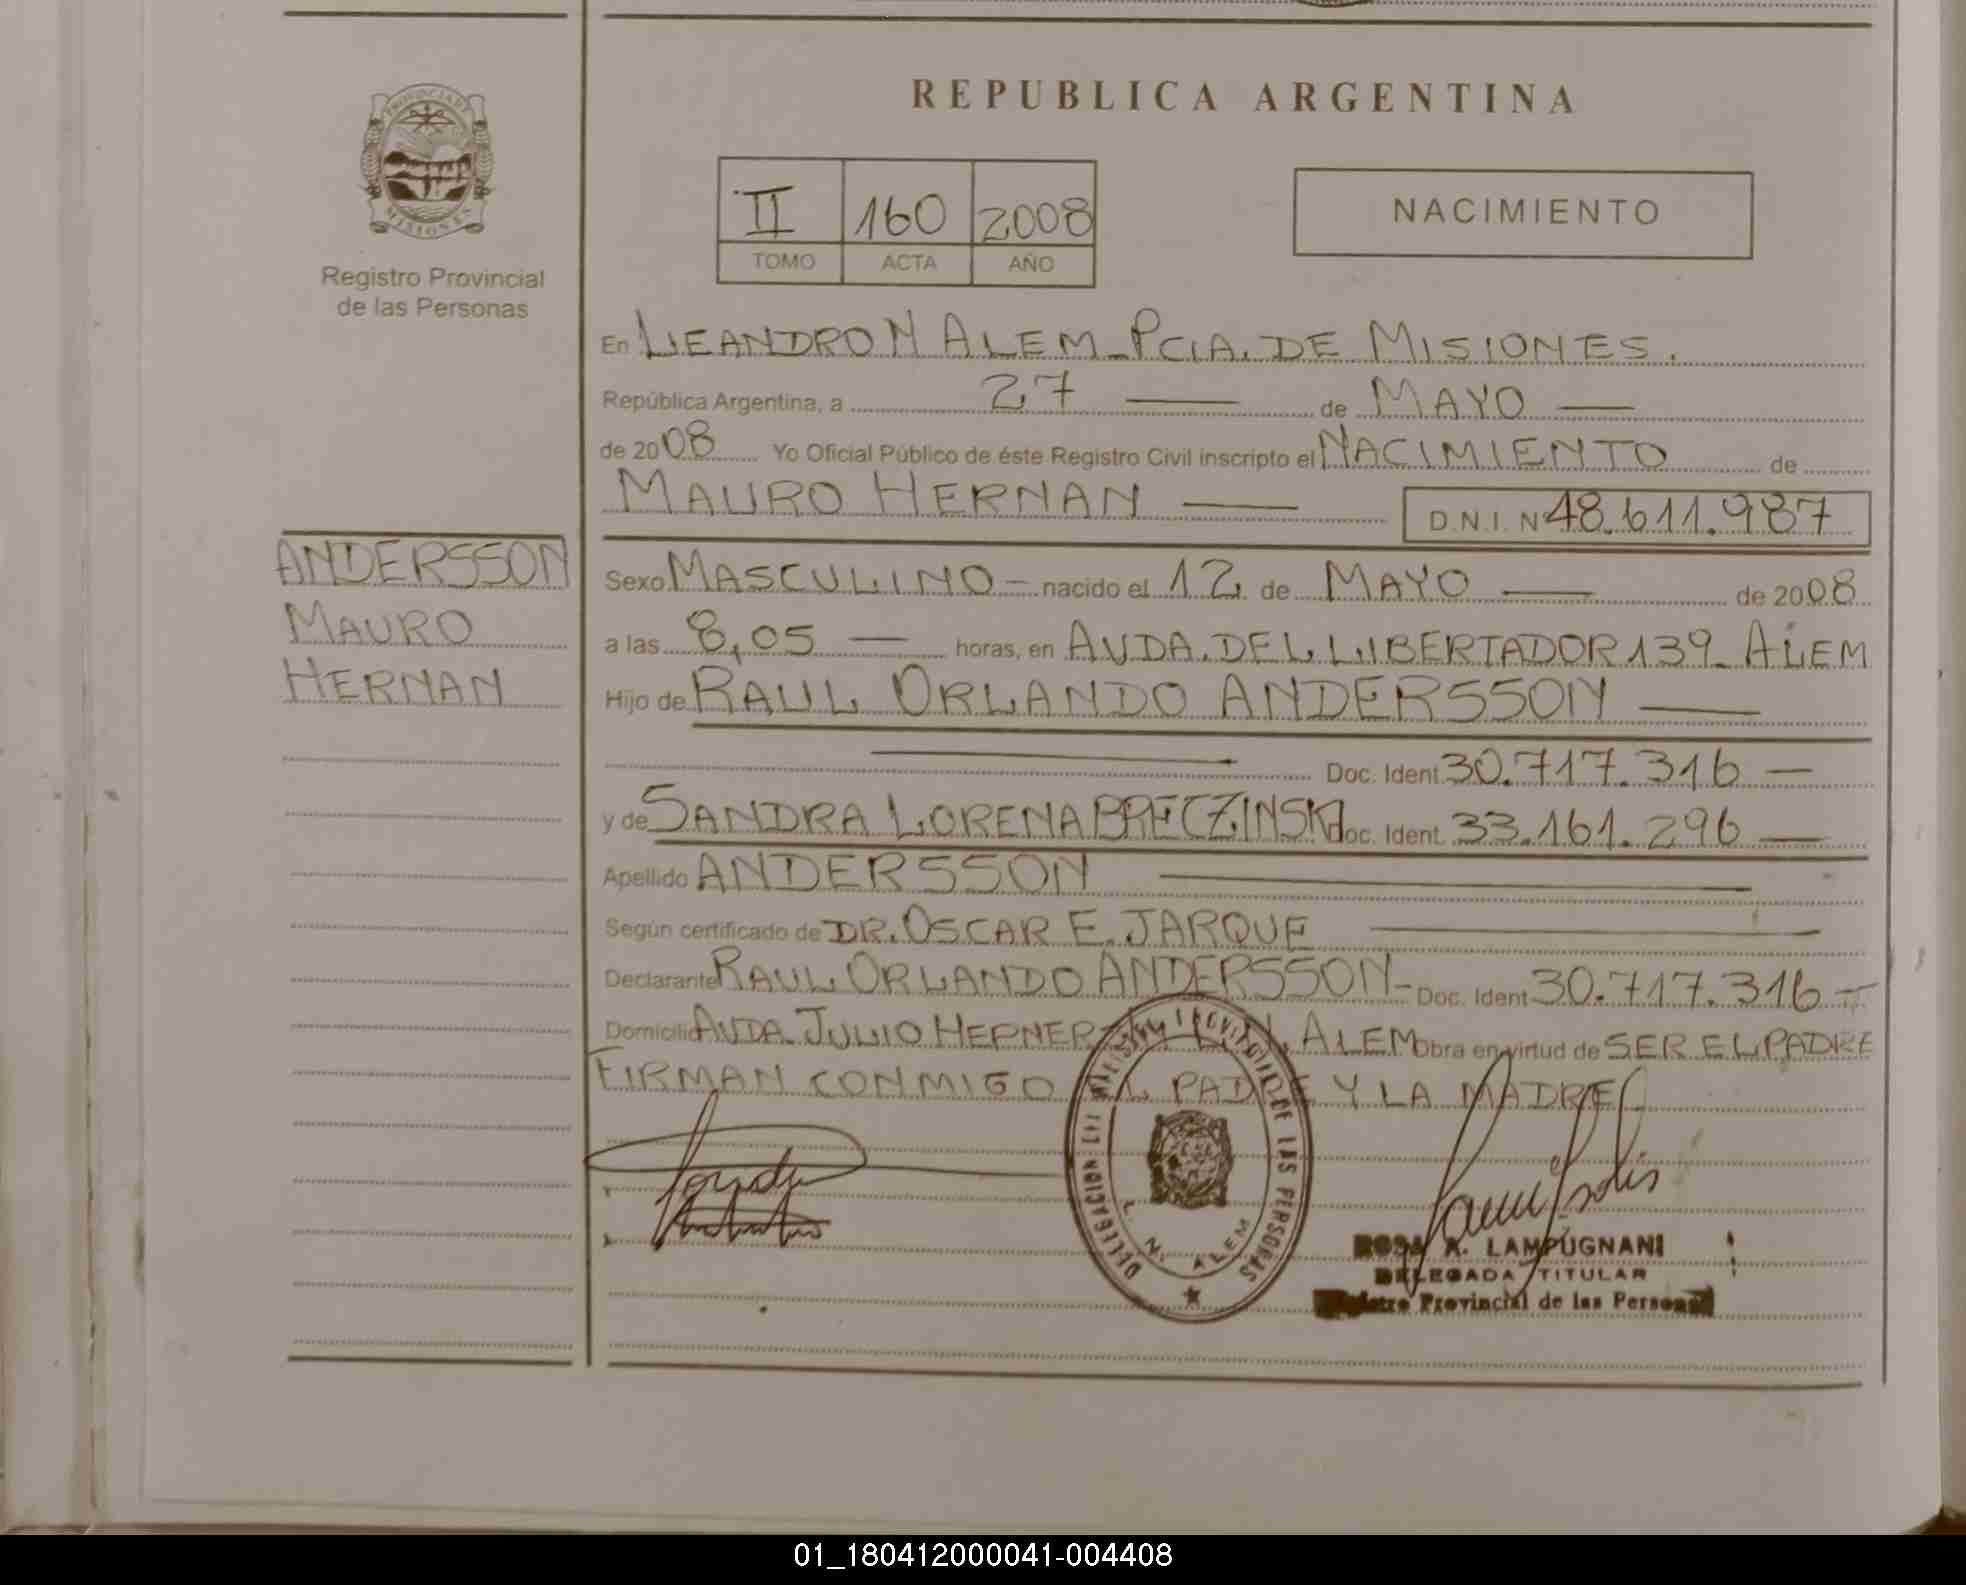 REPUBLICA ARGENTINA
PROVINCIA DE
MISIONES
Registro Provincial
de las Personas
II 160 2008
TOMO ACTA AÑO
NACIMIENTO
En LEANDRO N ALEM - PCIA. DE MISIONES.
República Argentina, a 27 — de MAYO —
de 2008 Yo Oficial Público de éste Registro Civil inscripto el NACIMIENTO de
MAURO HERNAN — D.N.I. N 48.611.987
ANDERSSON
MAURO
HERNAN
Sexo MASCULINO - nacido el 12 de MAYO — de 2008
a las 8,05 — horas, en AVDA. DEL LIBERTADOR 139 - ALEM
Hijo de RAUL ORLANDO ANDERSSON —
— Doc. Ident. 30.717.316 —
y de SANDRA LORENA BRECZINSKI Doc. Ident. 33.161.296 —
Apellido ANDERSSON —
Según certificado de DR. OSCAR E. JARQUE —
Declarante RAUL ORLANDO ANDERSSON - Doc. Ident 30.717.316 -
Domicilio AVDA. JULIO HEPNER ALEM Obra en virtud de SER EL PADRE
FIRMAN CONMIGO EL PADRE Y LA MADRE
DELEGACION REGISTRO PROVINCIAL DE LAS PERSONAS
L. N. ALEM
ROSA A. LAMPUGNANI
DELEGADA TITULAR
Registro Provincial de las Personas
01_180412000041-004408